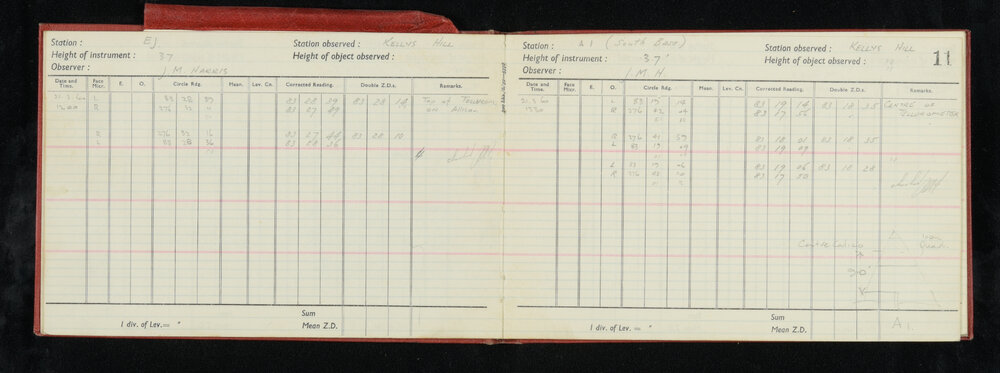 Station : EJ Station observed : KELLYS HILL
Height of instrument : 37 Height of object observed :
Observer : J M HARRIS
Date and Time. Face Micr. E. O. Circle Rdg. Mean. Lev. Cn. Corrected Reading. Double Z.D.s. Remarks.
21.3.60 L 83 28 39 83 28 39 83 28 14 Top of Tellurom
R 276 32 83 27 49 on Alidn
R 276 32 16 83 27 44 83 28 10
L 83 28 36 83 28 36
Sum
1 div. of Lev.= " Mean Z.D.
Station : A1 (South Base) Station observed : KELLYS HILL
Height of instrument : 37' Height of object observed : 11
Observer : J. M. H.
Date and Time. Face Micr. E. O. Circle Rdg. Mean. Lev. Cn. Corrected Reading. Double Z.D.s. Remarks.
21.3.60 L 83 19 14 83 19 14 83 18 35 Centre of
1330 R 276 42 04 83 17 56 Tellurometer
R 276 41 59 83 18 01 83 18 35
L 83 19 09 83 19 09
L 83 19 06 83 19 06 83 18 28
R 276 42 10 83 17 50
Centre
90'
A1.
Sum
1 div. of Lev.= " Mean Z.D.